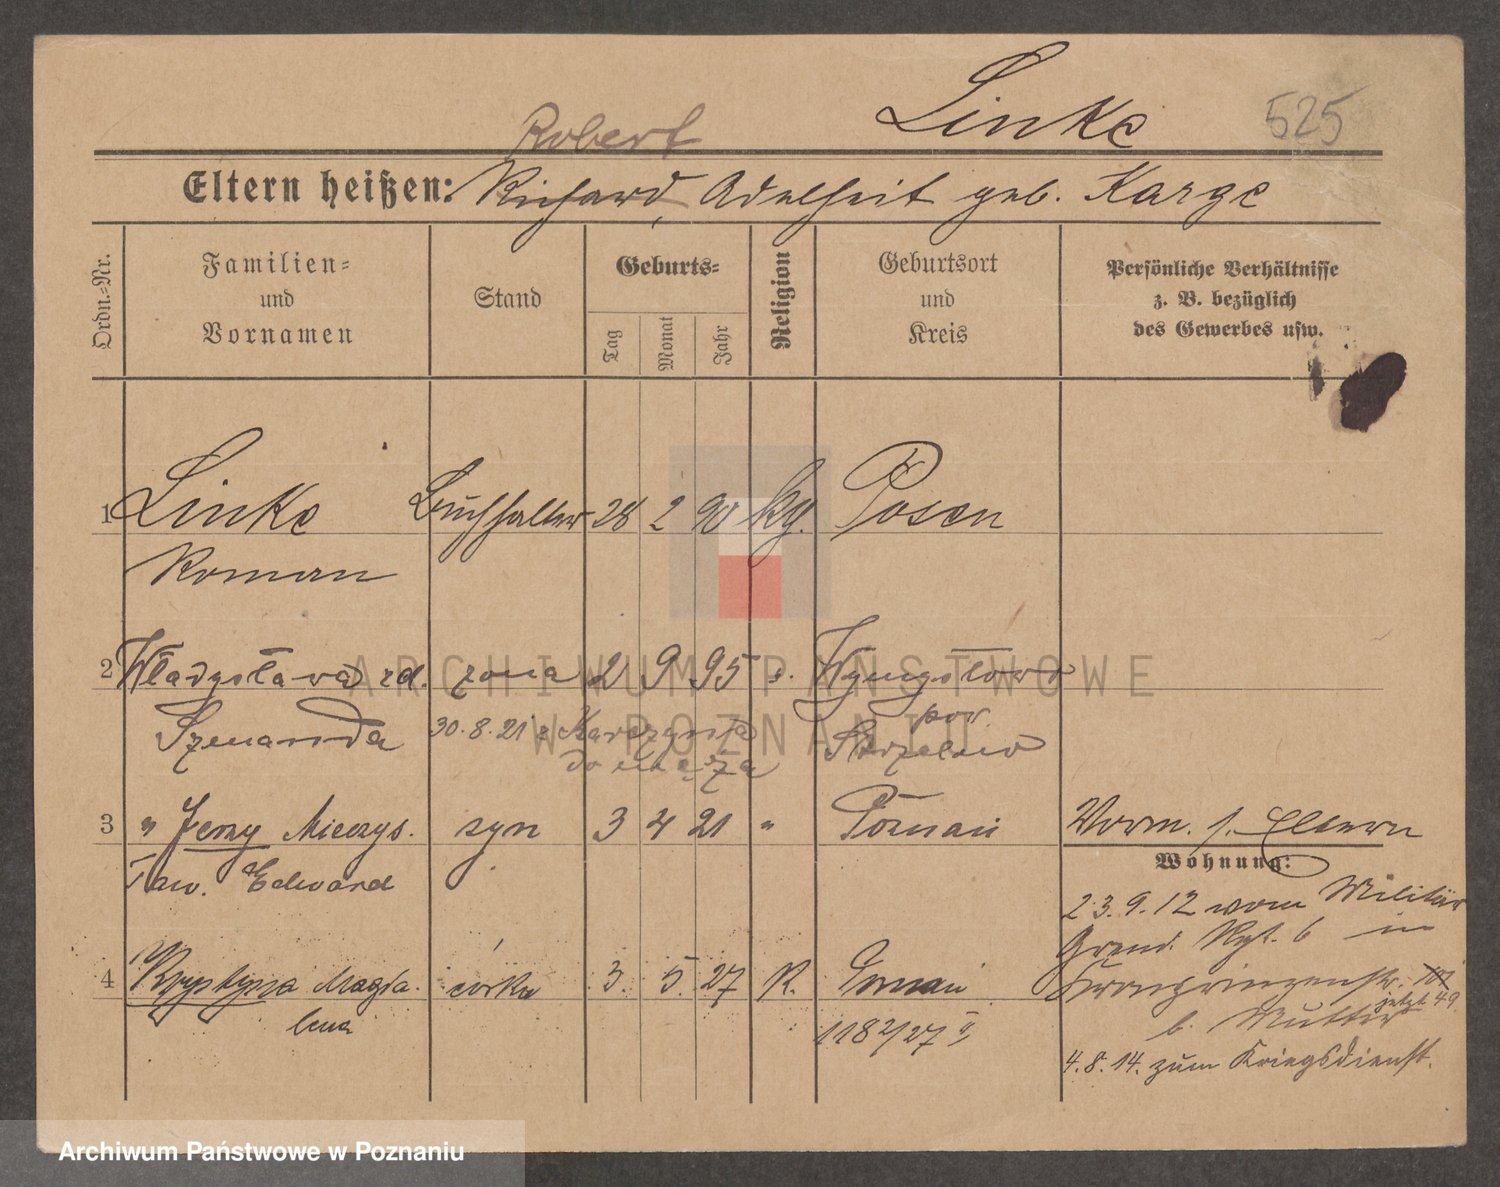 Linke 525
Robert
Eltern heißen: Richard, Adelheit geb. Karge
Ordn.-Nr.
Familien-
und
Vornamen
Stand
Geburts-
Tag
Monat
Jahr
Religion
Geburtsort
und
Kreis
Persönliche Verhältnisse
z. B. bezüglich
des Gewerbes usw.
1 Linke Buchhalter 28 2 90 kg. Posen
Roman
2 Władysława zd. żona 2 9 95 s.
Szenanda 30.8.21 z
pow.
Strzelno
do męża
3 " Jerzy Mieczys. syn 3 4 21 " Poznań Vorm. s. Eltern
ław. Edward
Wohnung:
23.9.12 vom Militär
Grend. Rgt. 6 in
4 Krystyna Magda- córka 3. 5. 27 R. Poznań Kronprinzenstr. 101
lena
jetzt 49
1182/27 b. Mutter
4.8.14. zum Kriegsdienst.
ARCHIWUM PAŃSTWOWE
W POZNANIU
Archiwum Państwowe w Poznaniu